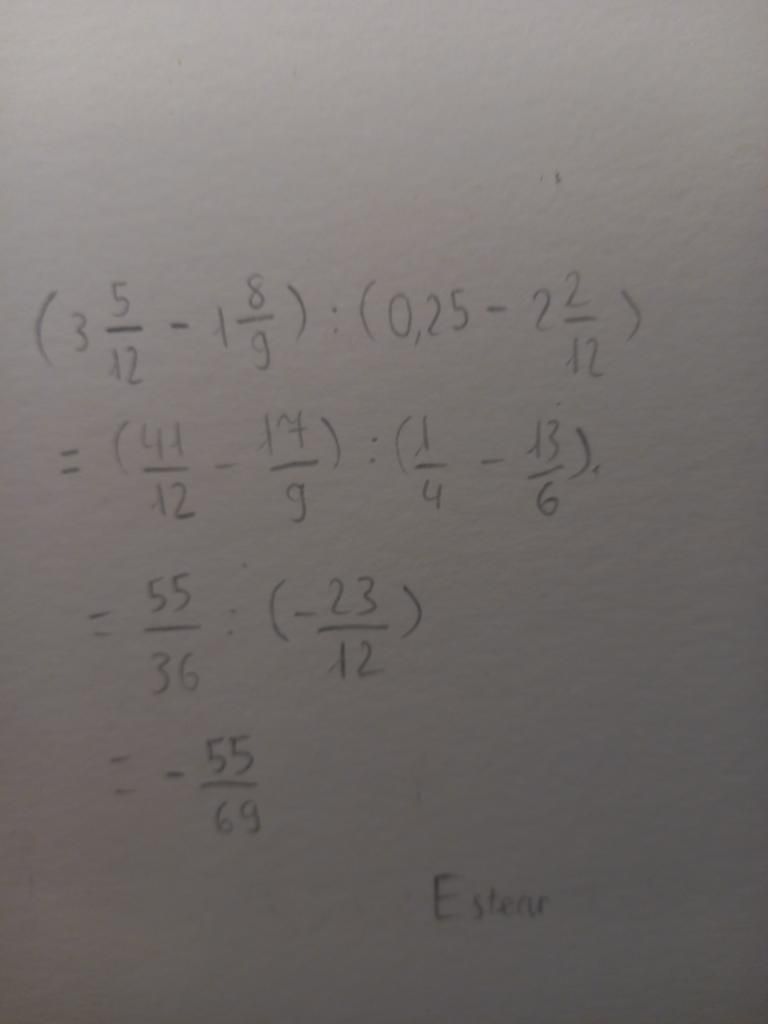 (3 5/12 - 1 8/9) : (0,25 - 2 2/12)
= (41/12 - 17/9) : (1/4 - 13/6).
= 55/36 : (-23/12)
= - 55/69
Estear